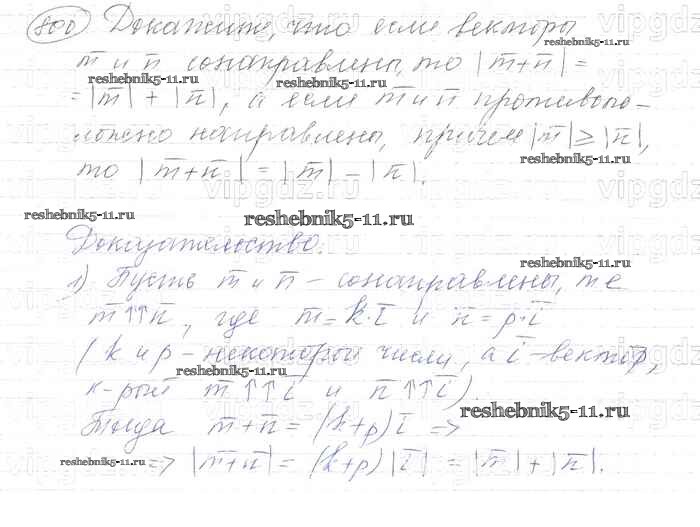 800 Докажите, что если векторы
m̅ и n̅ сонаправлены, то |m̅+n̅| =
= |m̅| + |n̅|, а если m̅ и n̅ противопо-
ложно направлены, причем |m̅| ≥ |n̅|,
то |m̅+n̅| = |m̅| - |n̅|.
Доказательство:
1) Пусть m̅ и n̅ - сонаправлены, т е
m̅ ↑↑ n̅, где m̅ = k·i̅ и n̅ = p·i̅
(k и p - некоторые числа, а i̅ - вектор,
к-рый m̅ ↑↑ i̅ и n̅ ↑↑ i̅).
Тогда m̅+n̅ = (k+p) i̅ =>
=> |m̅+n̅| = (k+p) |i̅| = |m̅| + |n̅|.
reshebnik5-11.ru
reshebnik5-11.ru
reshebnik5-11.ru
reshebnik5-11.ru
reshebnik5-11.ru
reshebnik5-11.ru
reshebnik5-11.ru
reshebnik5-11.ru
reshebnik5-11.ru